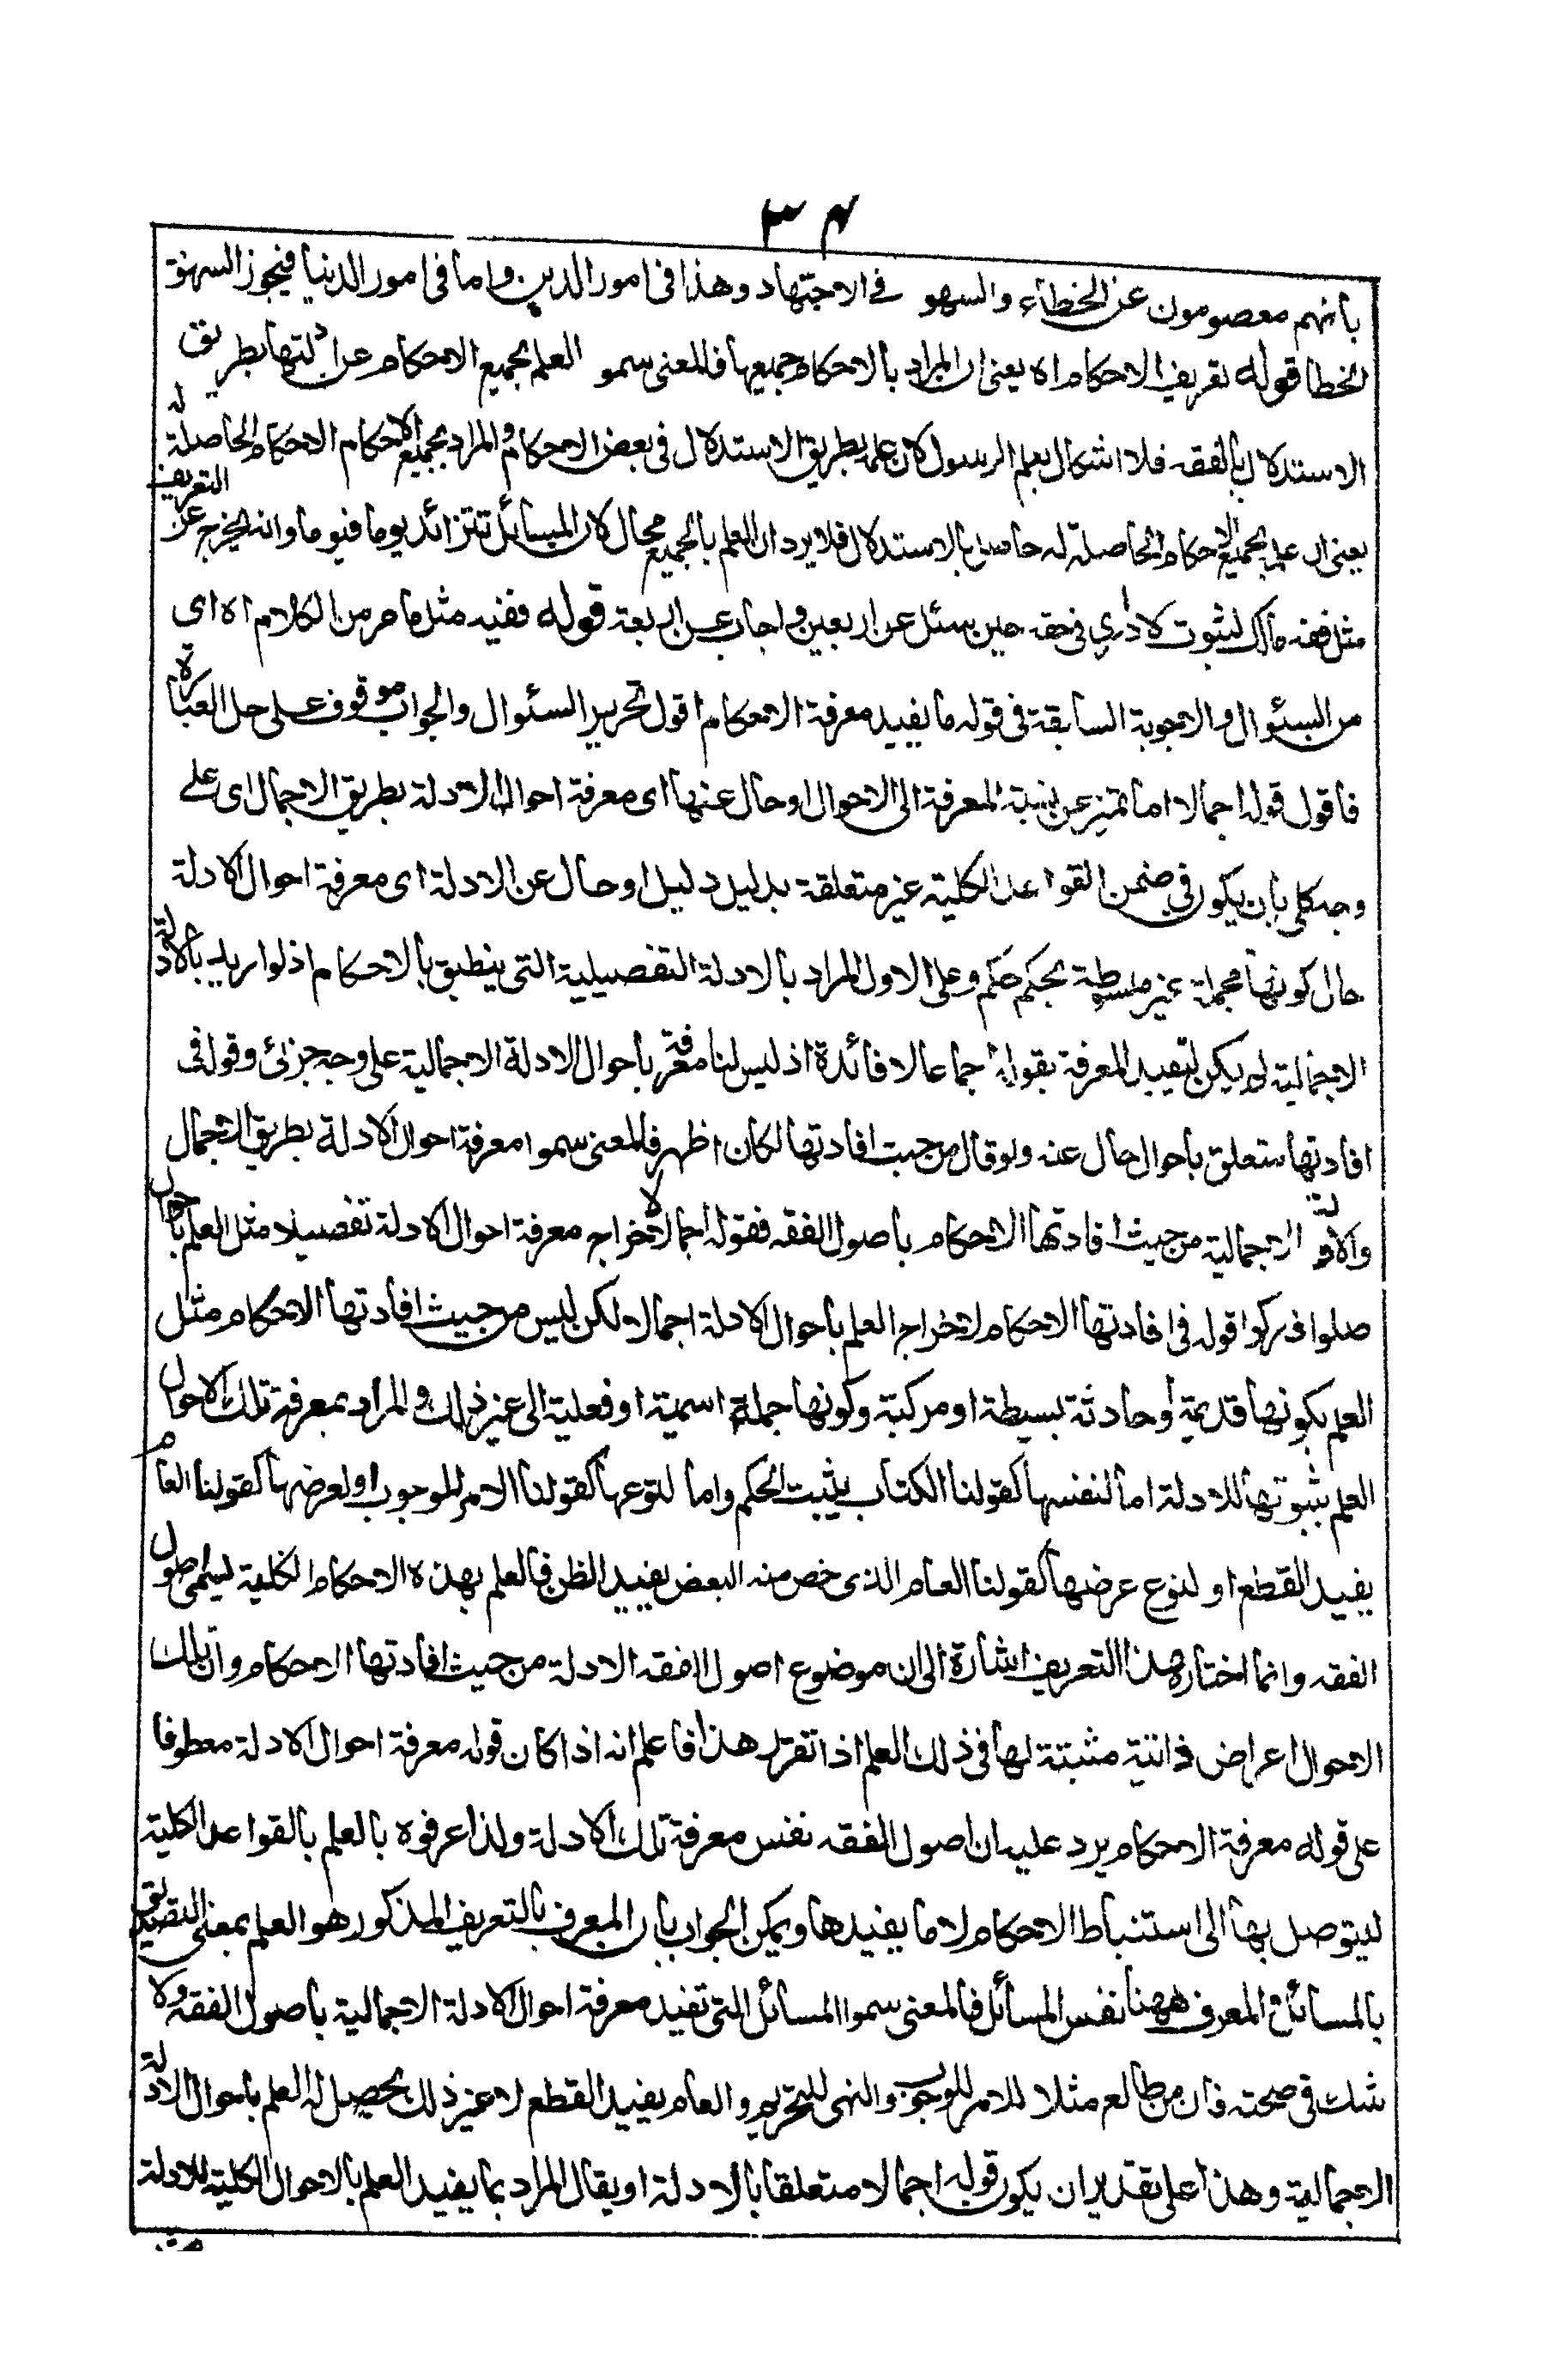 ٣٤
بانهم معصومون عن الخطاء والسهو فى الاجتهاد وهذا فى امور الدين واما فى امور الدنيا فيجوز السهو و
الخطا قوله تعريف الاحكام اه يعنى ان المراد بالاحكام جميعها فالمعنى سموا العلم بجميع الاحكام عن ادلتها بطريق
الاستدلال بالفقه فلا اشكال بعلم الرسول لان علمه بطريق الاستدلال فى بعض الاحكام والمراد بجميع الاحكام الاحكام الحاصلة له
يعنى ان علمه بجميع الاحكام الحاصلة له حاصل بالاستدلال فلا يرد ان العلم بالجميع محال لان المسائل تتزائد يوما فيوما وانه يخرج عن التعريف
مثل فقه مالك لثبوت لا ادرى فى حقه حين سئل عن اربعين واجاب عن اربعة قوله ففيه مثل ما مر من الكلام اه اى
من السئوال والاجوبة السابقة فى قوله ما يفيد معرفة الاحكام اقول تحرير السئوال والجواب موقوف على حل العبارة
فاقول قوله اجمالا اما تميز عن نسبة المعرفة الى الاحوال او حال عنها اى معرفة احوال الادلة بطريق الاجمال اى على
وجه كلى بان يكون فى ضمن القواعد الكلية غير متعلقة بدليل دليل او حال عن الادلة اى معرفة احوال الادلة
حال كونها مجملة غير بحكم حكم وعلى الاول المراد بالادلة التفصيلية التى ينطبق بالاحكام اذ لو اريد بالادلة
الاجمالية لم يكن لتقييد المعرفة بقوله اجماعا لا فائدة اذ ليس لنا معرفة باحوال الادلة الاجمالية على وجه جزئى وقوله فى
افادتها متعلق باحوال حال عنه ولو قال من حيث افادتها لكان اظهر فالمعنى سموا معرفة احوال الادلة بطريق الاجمال
والادلة الاجمالية من حيث افادتها الاحكام باصول الفقه فقوله اجمالا لاخراج معرفة احوال الادلة تفصيلا مثل العلم باحوال
صلوا فزكوا قوله فى افادتها الاحكام لاخراج العلم باحوال الادلة اجمالا لكن ليس من حيث افادتها الاحكام مثل
العلم بكونها قديمة او حادثة بسيطة او مركبة وكونها جملة اسمية او فعلية الى غير ذلك والمراد بمعرفة تلك الاحوال
العلم بثبوتها للادلة اما لنفسها كقولنا الكتاب يثبت الحكم واما لنوعها كقولنا الامر للوجوب او لعرضها كقولنا العام
يفيد القطع او لنوع عرضها كقولنا العام الذى خص منه البعض يفيد الظن فالعلم بهذه الاحكام الكلية يسمى اصول
الفقه وانما اختاره هذا التعريف اشارة الى ان موضوع اصول الفقه الادلة من حيث افادتها الاحكام وان تلك
الاحوال اعراض ذاتية مثبتة لها فى ذلك العلم اذا تقرر هذا فاعلم انه اذا كان قوله معرفة احوال الادلة معطوفا
على قوله معرفة الاحكام يرد عليه ان اصول الفقه نفس معرفة تلك الادلة ولذا عرفوه بالعلم بالقواعد الكلية
ليتوصل بها الى استنباط الاحكام لا ما يفيدها ويمكن الجواب بان المعرف بالتعريف المذكور هو العلم بمعنى التصديق
بالمسائل والمعرف ههنا نفس المسائل فالمعنى سموا المسائل التى تفيد معرفة احوال الادلة الاجمالية باصول الفقه ولا
شك فى صحته فان من طالع مثلا للامر للوجوب والنهى للتحريم والعام يفيد القطع لا غير ذلك يحصل له العلم باحوال الادلة
الاجمالية وهذا على تقدير ان يكون قوله اجمالا متعلقا بالادلة او يقال المراد بما يفيد العلم بالاحوال الكلية للادلة